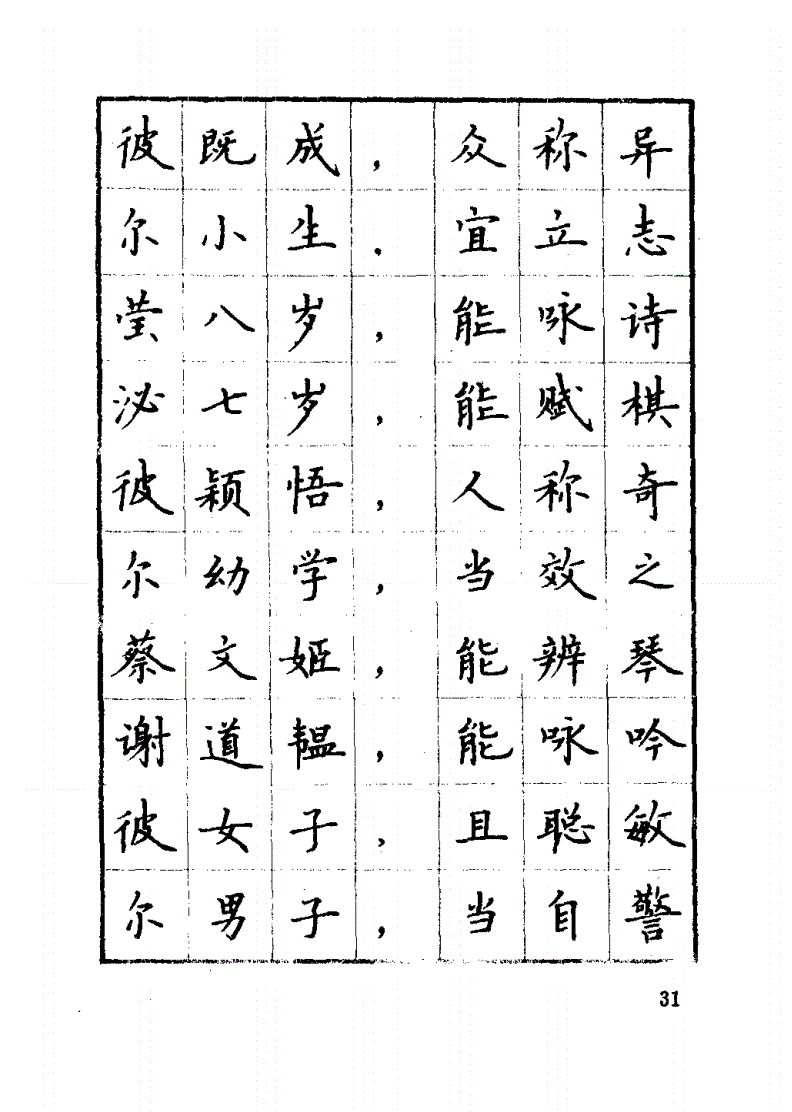 彼既成，众称异
尔小生．宜立志
莹八岁，能咏诗
泌七岁，能赋棋
彼颖悟，人称奇
尔幼学，当效之
蔡文姬，能辨琴
谢道韫，能咏吟
彼女子，且聪敏
尔男子，当自警
31